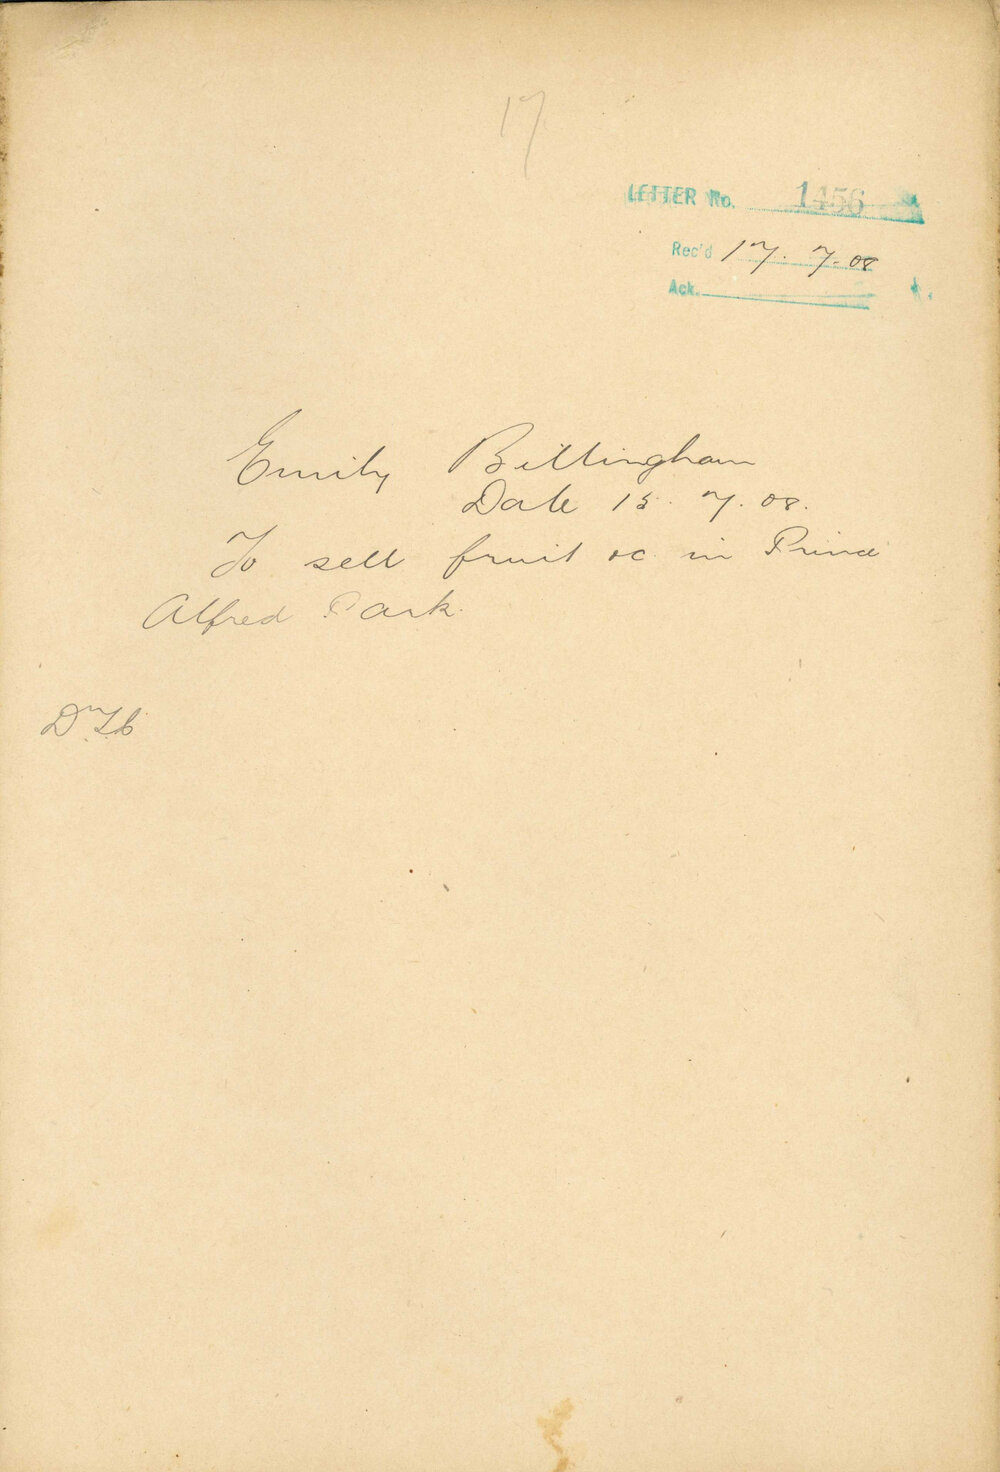 17
LETTER No. 1456
Rec'd 17. 7. 08
Ack.
Emily Billingham
Date 15. 7. 08.
To sell fruit &c in Prince
Alfred Park.